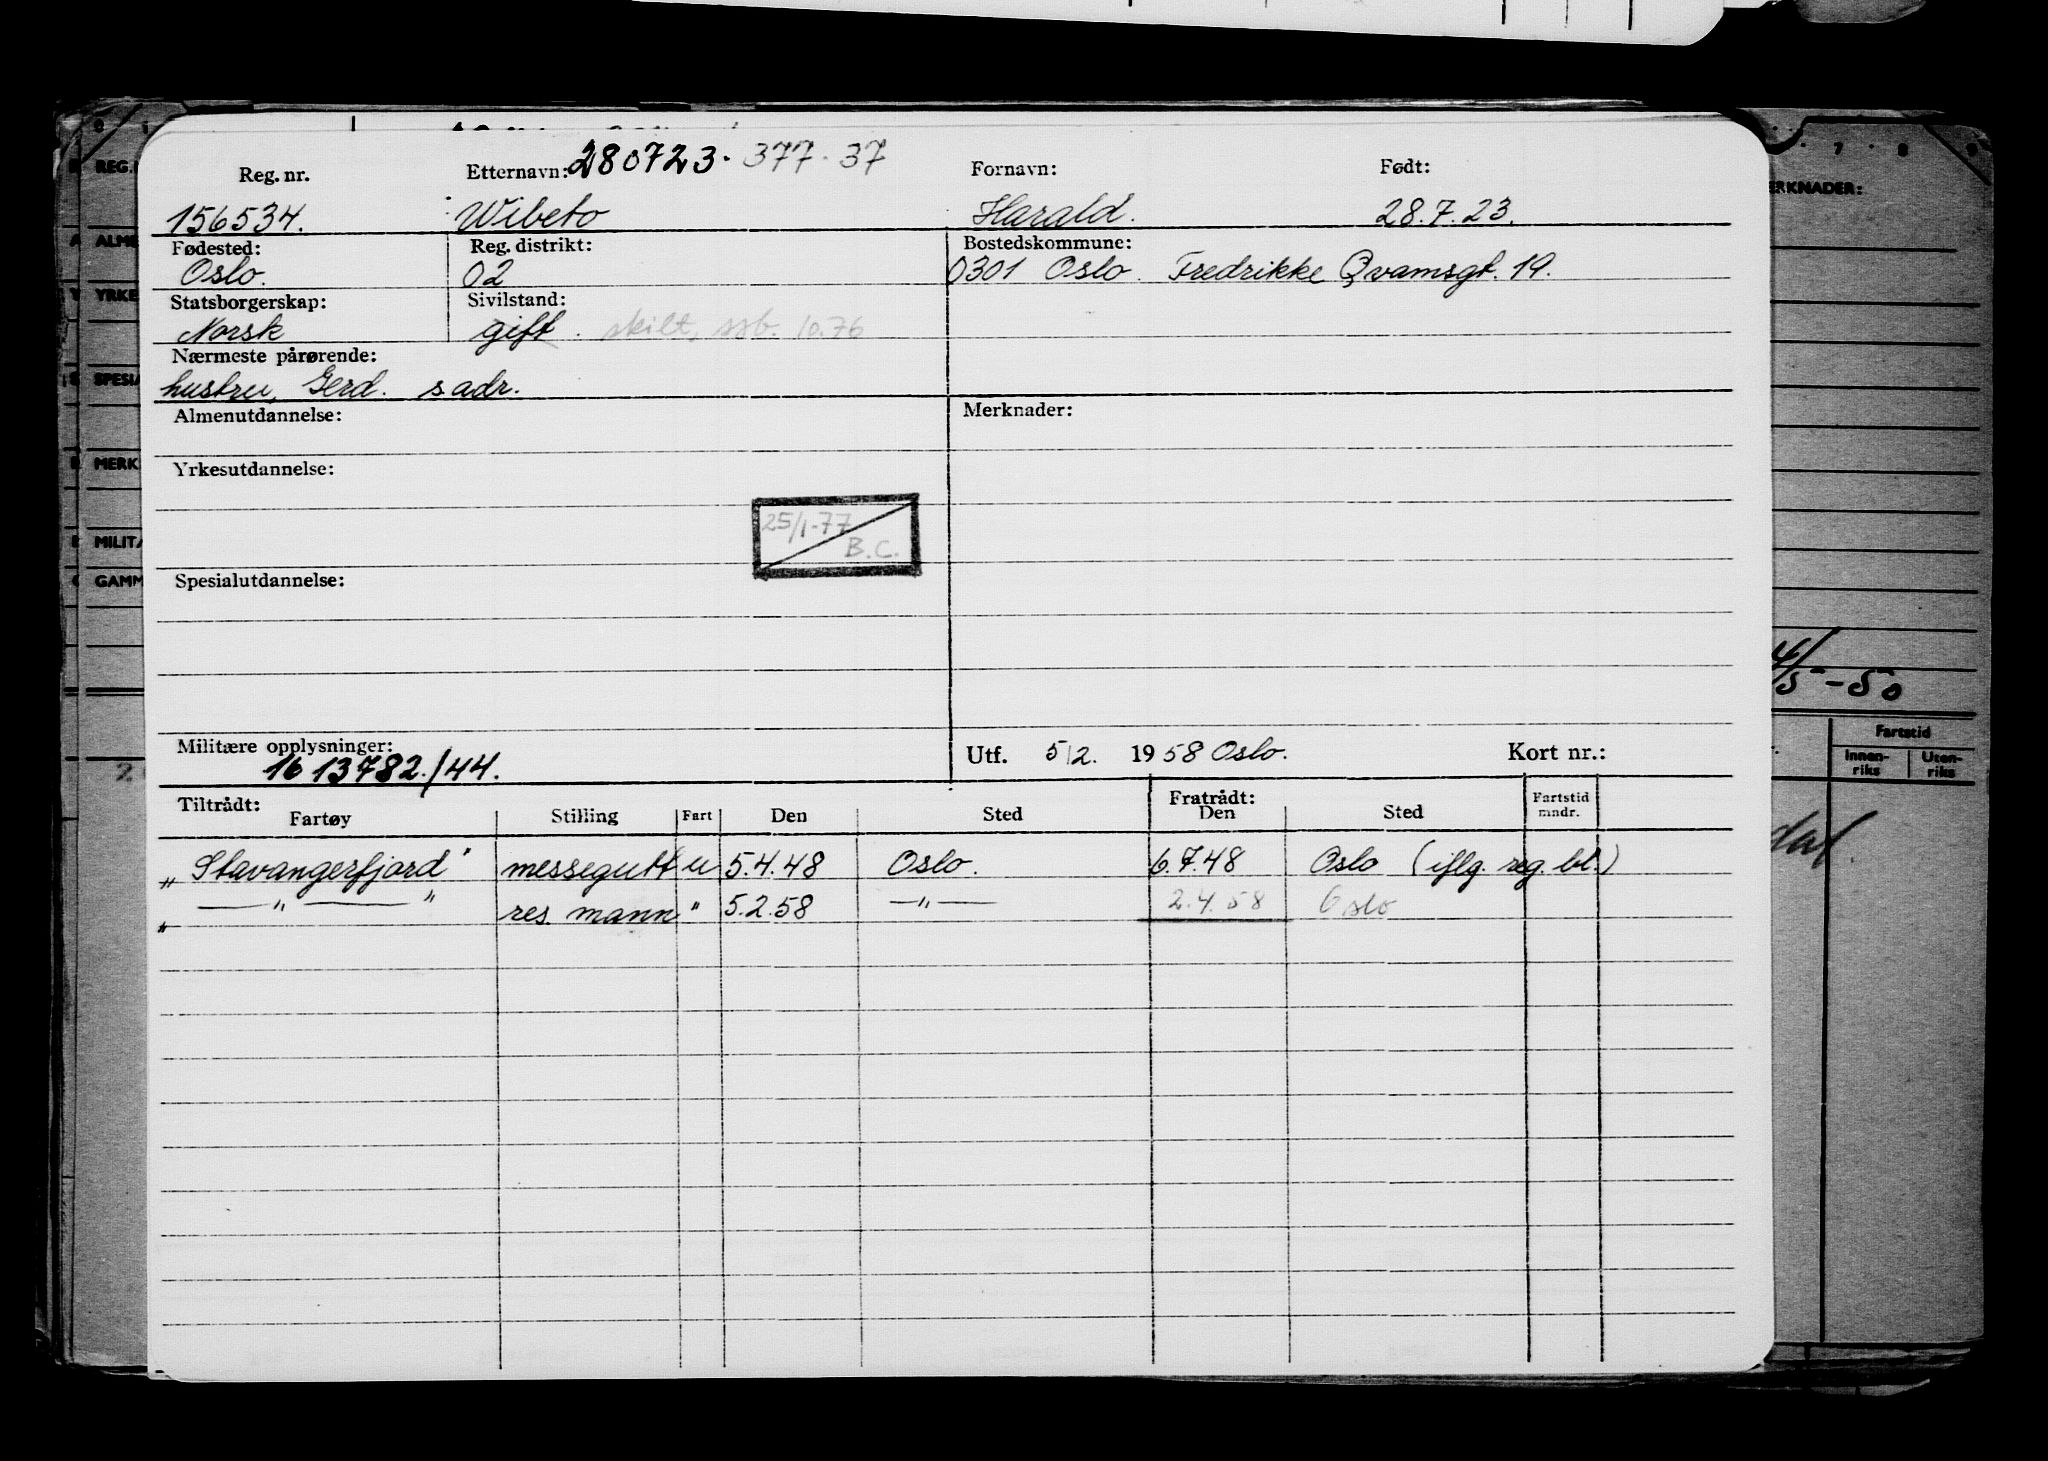 280723. 377. 37
Reg. nr. Etternavn: Fornavn: Født:
156534. Wibeto Harald. 28.7.23.
Fødested: Reg. distrikt: Bostedskommune:
Oslo. 02 0301 Oslo. Fredrikke Qvamsgt. 19.
Statsborgerskap: Sivilstand:
Norsk gift. skilt, ssb. 10.76
Nærmeste pårørende:
hustru, Gerd. s adr.
Almenutdannelse: Merknader:
Yrkesutdannelse:
25/1-77
B.C.
Spesialutdannelse:
Militære opplysninger: Utf. 5/2. 1958 Oslo. Kort nr.:
16 13782./44.
Tiltrådt: Fratrådt:
Fartøy Stilling Fart Den Sted Den Sted Fartstid mndr.
„Stavangerfjord" messegutt u 5.4.48 Oslo. 6.7.48 Oslo (iflg. reg. bl.)
„ — " — " res. mann " 5.2.58 — " — 2.4.58 Oslo
REG.
ALME
YRKE
SPESIA
MERK
MILITÆ
GAMM
ERKNADER:
4/5-50
Fartstid
Innen-riks Uten-riks
7 8 9